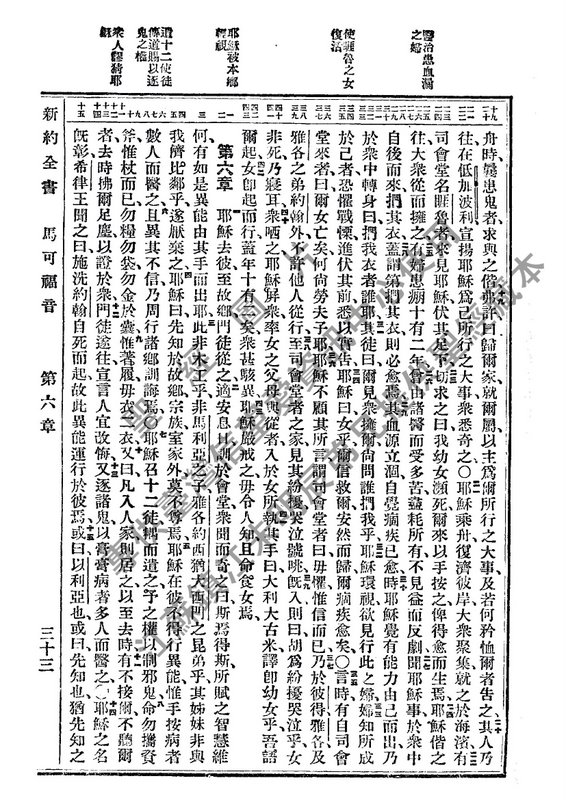 醫治患血漏
之婦
使睚魯之女
復活
耶穌被本鄉
輕視
遣十二使徒
傳道賜以逐
鬼之權
舟時曩患鬼者求與之偕弗許曰歸爾家就爾屬以主爲爾所行之大事及若何矜恤爾者告之其人乃
往在低加波利宣揚耶穌爲己所行之大事衆悉奇之〇耶穌乘舟復濟彼岸大衆聚集就之於海濱有
司會堂名睚魯者來見耶穌伏其足下切求之曰我幼女瀕死爾來以手按之俾得愈而生焉耶穌偕之
往大衆從而擁之有婦患漏十有二年曾由諸醫而受多苦盡耗所有不見益而反劇聞耶穌事於衆中
自後而來捫其衣蓋謂第捫其衣則必愈焉其血源立涸自覺痼疾已愈時耶穌覺有能力由己而出乃
於衆中轉身曰捫我衣者誰耶其徒曰爾見衆擁爾尙問誰捫我乎耶穌環視欲見行此之婦婦知所成
於己者恐懼戰慄進伏其前悉以實告耶穌曰女乎爾信救爾安然而歸爾痼疾愈矣〇言時有自司會
堂來者曰爾女亡矣何尙勞夫子耶耶穌不顧其所言謂司會堂者曰毋懼惟信而已乃於彼得雅各及
雅各之弟約翰外不許他人從行至司會堂者之家見其紛擾哭泣號咷旣入則曰胡爲紛擾哭泣乎女
非死乃寢耳衆哂之耶穌屛衆率女之父母與從者入於女所執其手曰大利大古米譯卽幼女乎吾語
爾起女卽起而行蓋年十有二矣衆甚駭異耶穌嚴戒之毋令人知且命食女焉
第六章 耶穌去彼至故鄉門徒從之適安息日訓於會堂衆聞而奇曰斯焉得斯所賦之智慧維
何有如是異能由其手而出耶此非木工乎非馬利亞之子雅各約西猶大西門之昆弟乎其姊妹非與
我儕比鄰乎遂厭棄之耶穌曰先知於故鄉宗族室家外莫不尊焉耶穌在彼不得行異能惟手按病者
數人而醫之且異其不信乃周行諸鄉訓誨焉〇耶穌召十二徒耦而遣之予之權以制邪鬼命勿攜賫
斧惟杖而已勿糧勿袋勿金於囊惟著履毋衣二衣又曰凡入人家則居之以至去時有不接爾不聽爾
者去時拂爾足塵以證於衆門徒遂往宣言人宜改悔又逐諸鬼以膏膏病者多人而醫之〇耶穌之名
旣彰希律王聞之曰施洗約翰自死而起故此異能運行於彼焉或曰以利亞也或曰先知也猶先知之
新約全書 馬可福音 第六章 三十三